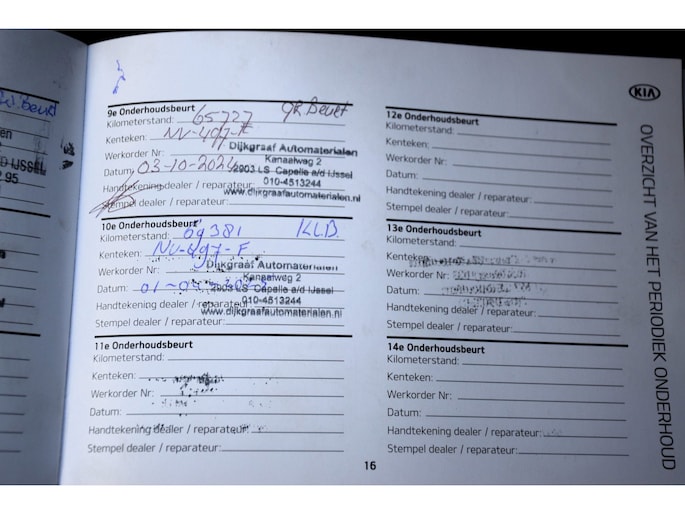 W. Beurt
en
D IJSSEL
95
9e Onderhoudsbeurt GR Beurt
Kilometerstand: 65727
Kenteken: NV-497-F
Werkorder Nr: Dijkgraaf Automaterialen
Kanaalweg 2
Datum: 03-10-2024 2903 LS Capelle a/d IJssel
010-4513244
Handtekening dealer / reparateur:
www.dijkgraafautomaterialen.nl
Stempel dealer / reparateur:
10e Onderhoudsbeurt
Kilometerstand: 69381 KLB
Kenteken: NV-497-F
Werkorder Nr: Dijkgraaf Automaterialen
Kanaalweg 2
Datum: 2903 LS Capelle a/d IJssel
010-4513244
Handtekening dealer / reparateur:
www.dijkgraafautomaterialen.nl
Stempel dealer / reparateur:
11e Onderhoudsbeurt
Kilometerstand:
Kenteken:
Werkorder Nr:
Datum:
Handtekening dealer / reparateur:
Stempel dealer / reparateur:
12e Onderhoudsbeurt
Kilometerstand:
Kenteken:
Werkorder Nr:
Datum:
Handtekening dealer / reparateur:
Stempel dealer / reparateur:
13e Onderhoudsbeurt
Kilometerstand:
Kenteken:
Werkorder Nr:
Datum:
Handtekening dealer / reparateur:
Stempel dealer / reparateur:
14e Onderhoudsbeurt
Kilometerstand:
Kenteken:
Werkorder Nr:
Datum:
Handtekening dealer / reparateur:
Stempel dealer / reparateur:
KIA
OVERZICHT VAN HET PERIODIEK ONDERHOUD
16